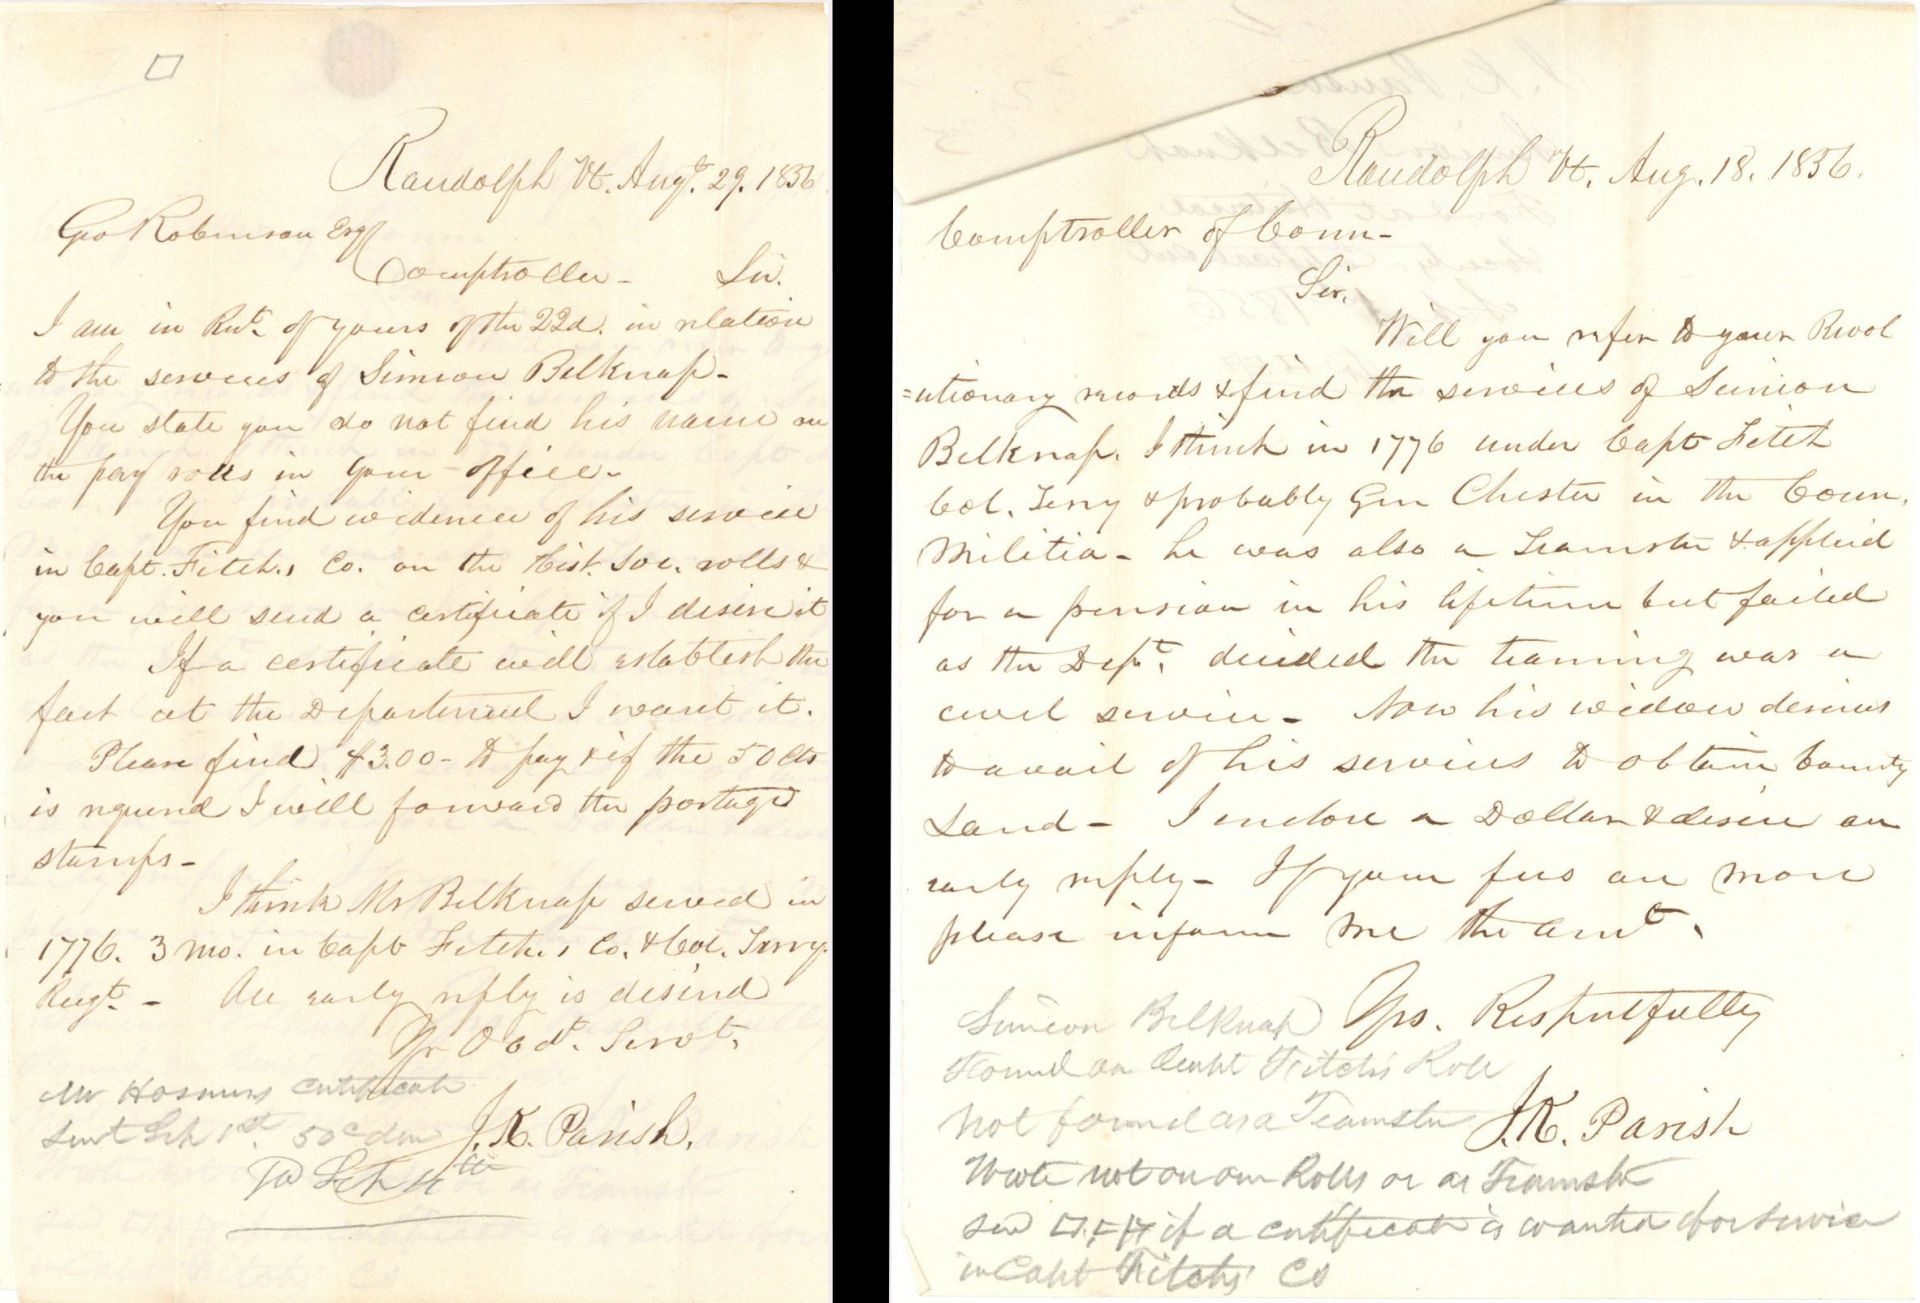 Randolph Vt. Augt. 29. 1856
Geo Robinson Esq
Comptroller - Sir.
I am in Rect. of yours of the 22d. in relation
to the services of Simeon Belknap -
You state you do not find his name on
the pay rolls in your office -
You find evidence of his service
in Capt. Fitch,s Co. on the Hist. Soc. rolls &
you will send a certificate if I desire it
If a certificate will establish the
fact at the Department I want it.
Please find $3.00 - to pay & if the 50 cts
is required I will forward the postage
stamps -
I think Mr Belknap served in
1776. 3 mo. in Capt Fitch,s Co. & Col. Terry.
Regt - An early reply is desired
Yr Obdt. Servt.
J. K. Parish.
Mr Hosmers certificate
sent Sept 1st. 50c due
Pd Sept 4th
Randolph Vt. Aug. 18. 1856.
Comptroller of Conn -
Sir.
Will you refer to your Revol
=utionary records & find the services of Simion
Belknap. I think in 1776 under Capt Fitch
Col. Terry & probably Gen Chester in the Conn.
Militia - he was also a Teamster & applied
for a pension in his lifetime but failed
as the Dept. decided the teaming was a
civil service - Now his widow desires
to avail of his services to obtain bounty
Land - I enclose a Dollar & desire an
early reply - If your fees are more
please inform me the amt.
Yrs. Respectfully
J. K. Parish
Simeon Belknap
Found on Capt Fitch's Roll
Not found as a Teamster
Wrote not on our Rolls or as Teamster
if a certificate is wanted for service
in Capt Fitch's Co